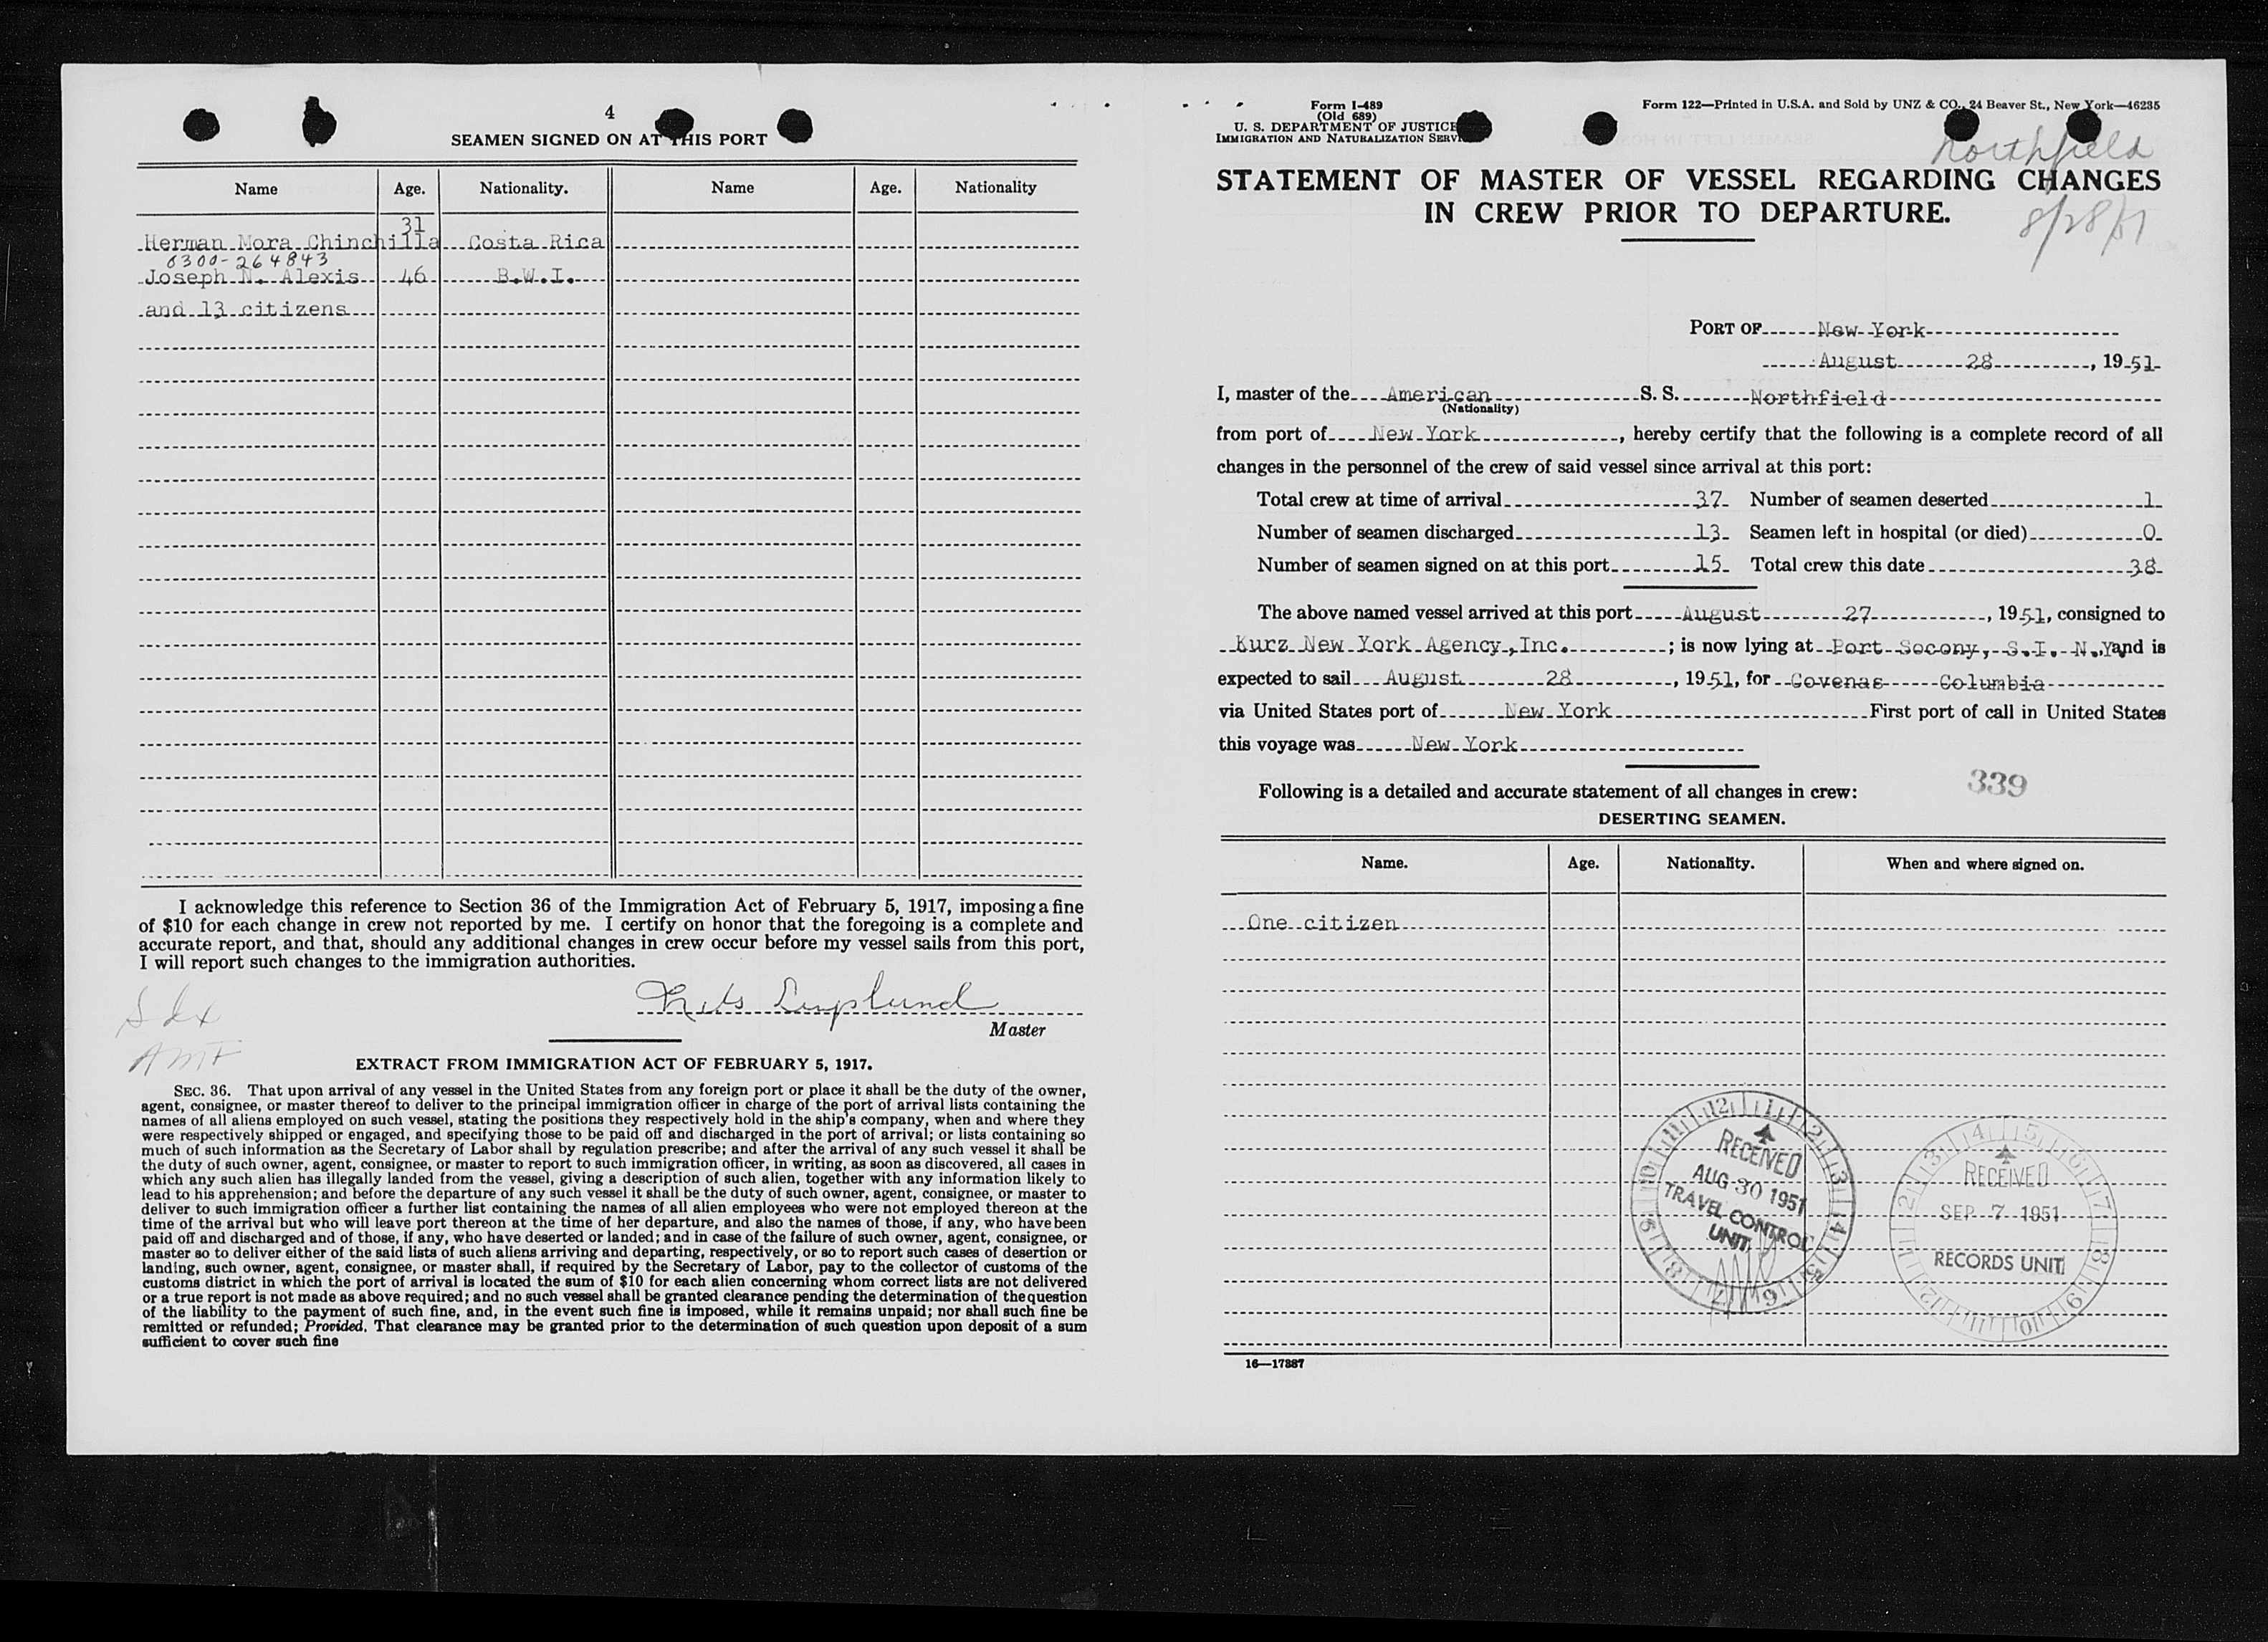 4
SEAMEN SIGNED ON AT THIS PORT
Name Age. Nationality. Name Age. Nationality
Herman Mora Chinchilla 31 Costa Rica
0300-264843
Joseph N. Alexis 46 B.W.I.
and 13 citizens
I acknowledge this reference to Section 36 of the Immigration Act of February 5, 1917, imposing a fine
of $10 for each change in crew not reported by me. I certify on honor that the foregoing is a complete and
accurate report, and that, should any additional changes in crew occur before my vessel sails from this port,
I will report such changes to the immigration authorities.
Master
AMF
EXTRACT FROM IMMIGRATION ACT OF FEBRUARY 5, 1917.
SEC. 36. That upon arrival of any vessel in the United States from any foreign port or place it shall be the duty of the owner,
agent, consignee, or master thereof to deliver to the principal immigration officer in charge of the port of arrival lists containing the
names of all aliens employed on such vessel, stating the positions they respectively hold in the ship's company, when and where they
were respectively shipped or engaged, and specifying those to be paid off and discharged in the port of arrival; or lists containing so
much of such information as the Secretary of Labor shall by regulation prescribe; and after the arrival of any such vessel it shall be
the duty of such owner, agent, consignee, or master to report to such immigration officer, in writing, as soon as discovered, all cases in
which any such alien has illegally landed from the vessel, giving a description of such alien, together with any information likely to
lead to his apprehension; and before the departure of any such vessel it shall be the duty of such owner, agent, consignee, or master to
deliver to such immigration officer a further list containing the names of all alien employees who were not employed thereon at the
time of the arrival but who will leave port thereon at the time of her departure, and also the names of those, if any, who have been
paid off and discharged and of those, if any, who have deserted or landed; and in case of the failure of such owner, agent, consignee, or
master so to deliver either of the said lists of such aliens arriving and departing, respectively, or so to report such cases of desertion or
landing, such owner, agent, consignee, or master shall, if required by the Secretary of Labor, pay to the collector of customs of the
customs district in which the port of arrival is located the sum of $10 for each alien concerning whom correct lists are not delivered
or a true report is not made as above required; and no such vessel shall be granted clearance pending the determination of the question
of the liability to the payment of such fine, and, in the event such fine is imposed, while it remains unpaid; nor shall such fine be
remitted or refunded; Provided, That clearance may be granted prior to the determination of such question upon deposit of a sum
sufficient to cover such fine
Form I-489
(Old 689)
U. S. DEPARTMENT OF JUSTICE
IMMIGRATION AND NATURALIZATION SERVI
Form 122—Printed in U.S.A. and Sold by UNZ & CO., 24 Beaver St., New York—46235
Northfield
STATEMENT OF MASTER OF VESSEL REGARDING CHANGES
IN CREW PRIOR TO DEPARTURE.
8/28/51
PORT OF New York
August 28, 1951
I, master of the American S. S. Northfield
(Nationality)
from port of New York, hereby certify that the following is a complete record of all
changes in the personnel of the crew of said vessel since arrival at this port:
Total crew at time of arrival 37 Number of seamen deserted 1
Number of seamen discharged 13 Seamen left in hospital (or died) 0
Number of seamen signed on at this port 15 Total crew this date 38
The above named vessel arrived at this port August 27, 1951, consigned to
Kurz New York Agency, Inc.; is now lying at Port Socony, S.I. N.Y. and is
expected to sail August 28, 1951, for Covenas Columbia
via United States port of New York First port of call in United States
this voyage was New York
339
Following is a detailed and accurate statement of all changes in crew:
DESERTING SEAMEN.
Name. Age. Nationality. When and where signed on.
One citizen
12 1 2 3 4 5 6 7 8 9 10 11
RECEIVED
AUG 30 1951
TRAVEL CONTROL
UNIT
4 5 6 7 8 9 10 11 12 1 2 3
RECEIVED
SEP 7 1951
RECORDS UNIT
16—17387